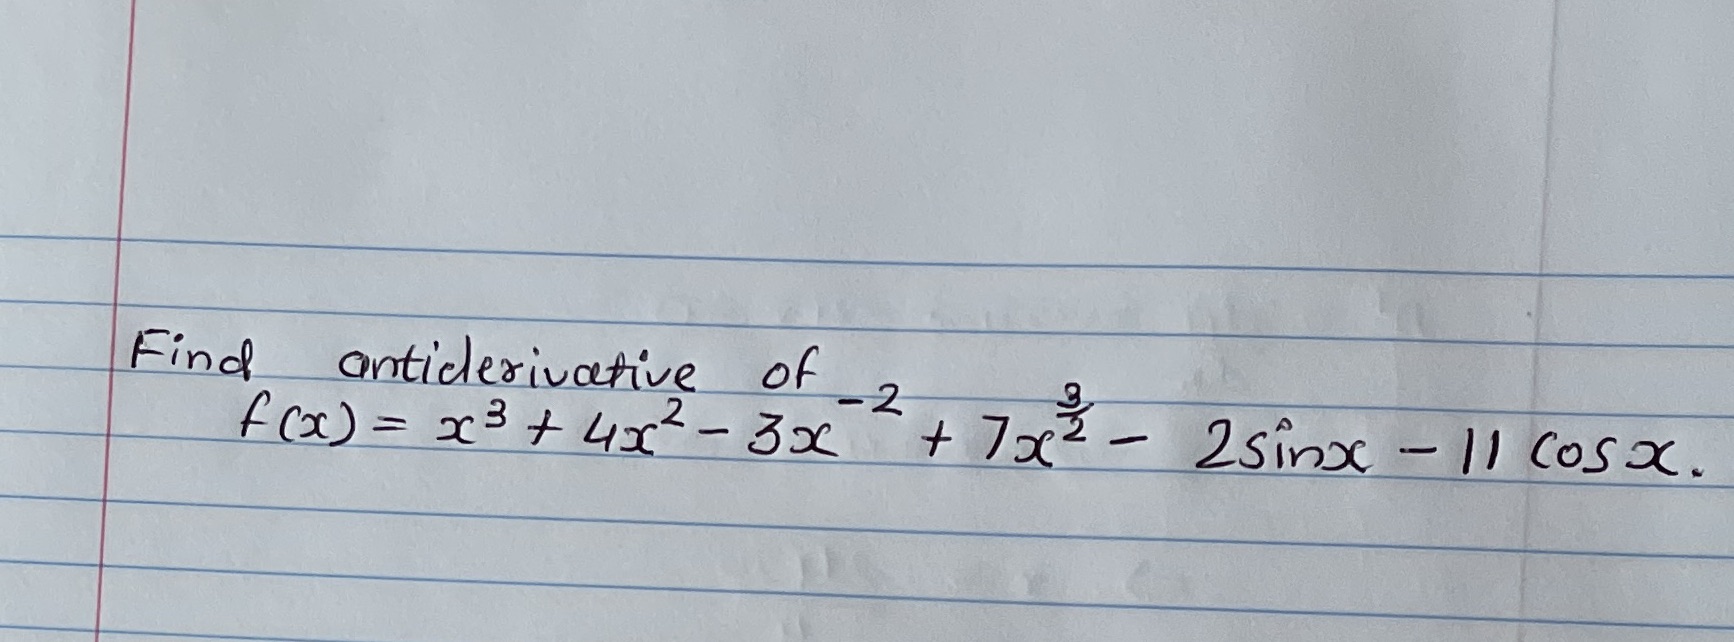 Find antiderivative of
f(x) = x³ + 4x² - 3x⁻² + 7x^{3/2} - 2sinx - 11 cosx.